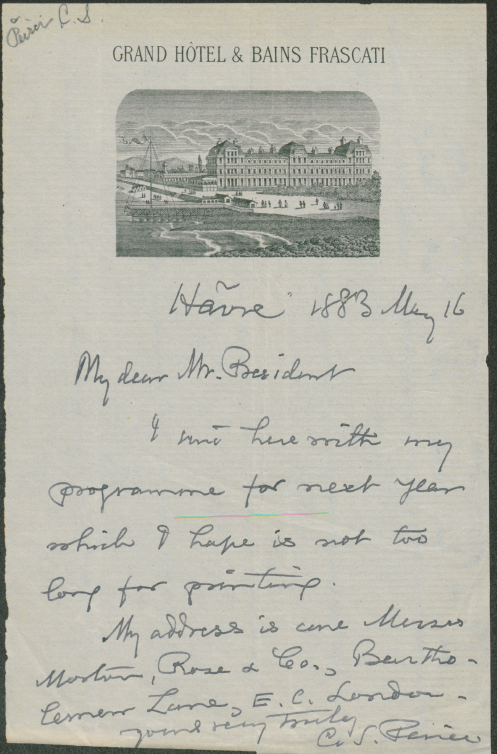 Peirce C. S.
GRAND HÔTEL & BAINS FRASCATI
Hâvre 1883 May 16
My dear Mr. President
I send herewith my
programme for next year
which I hope is not too
long for printing.
My address is care Messrs
Morton, Rose & Co., Bartho-
lemew Lane, E. C. London.
yours very truly
C. S. Peirce